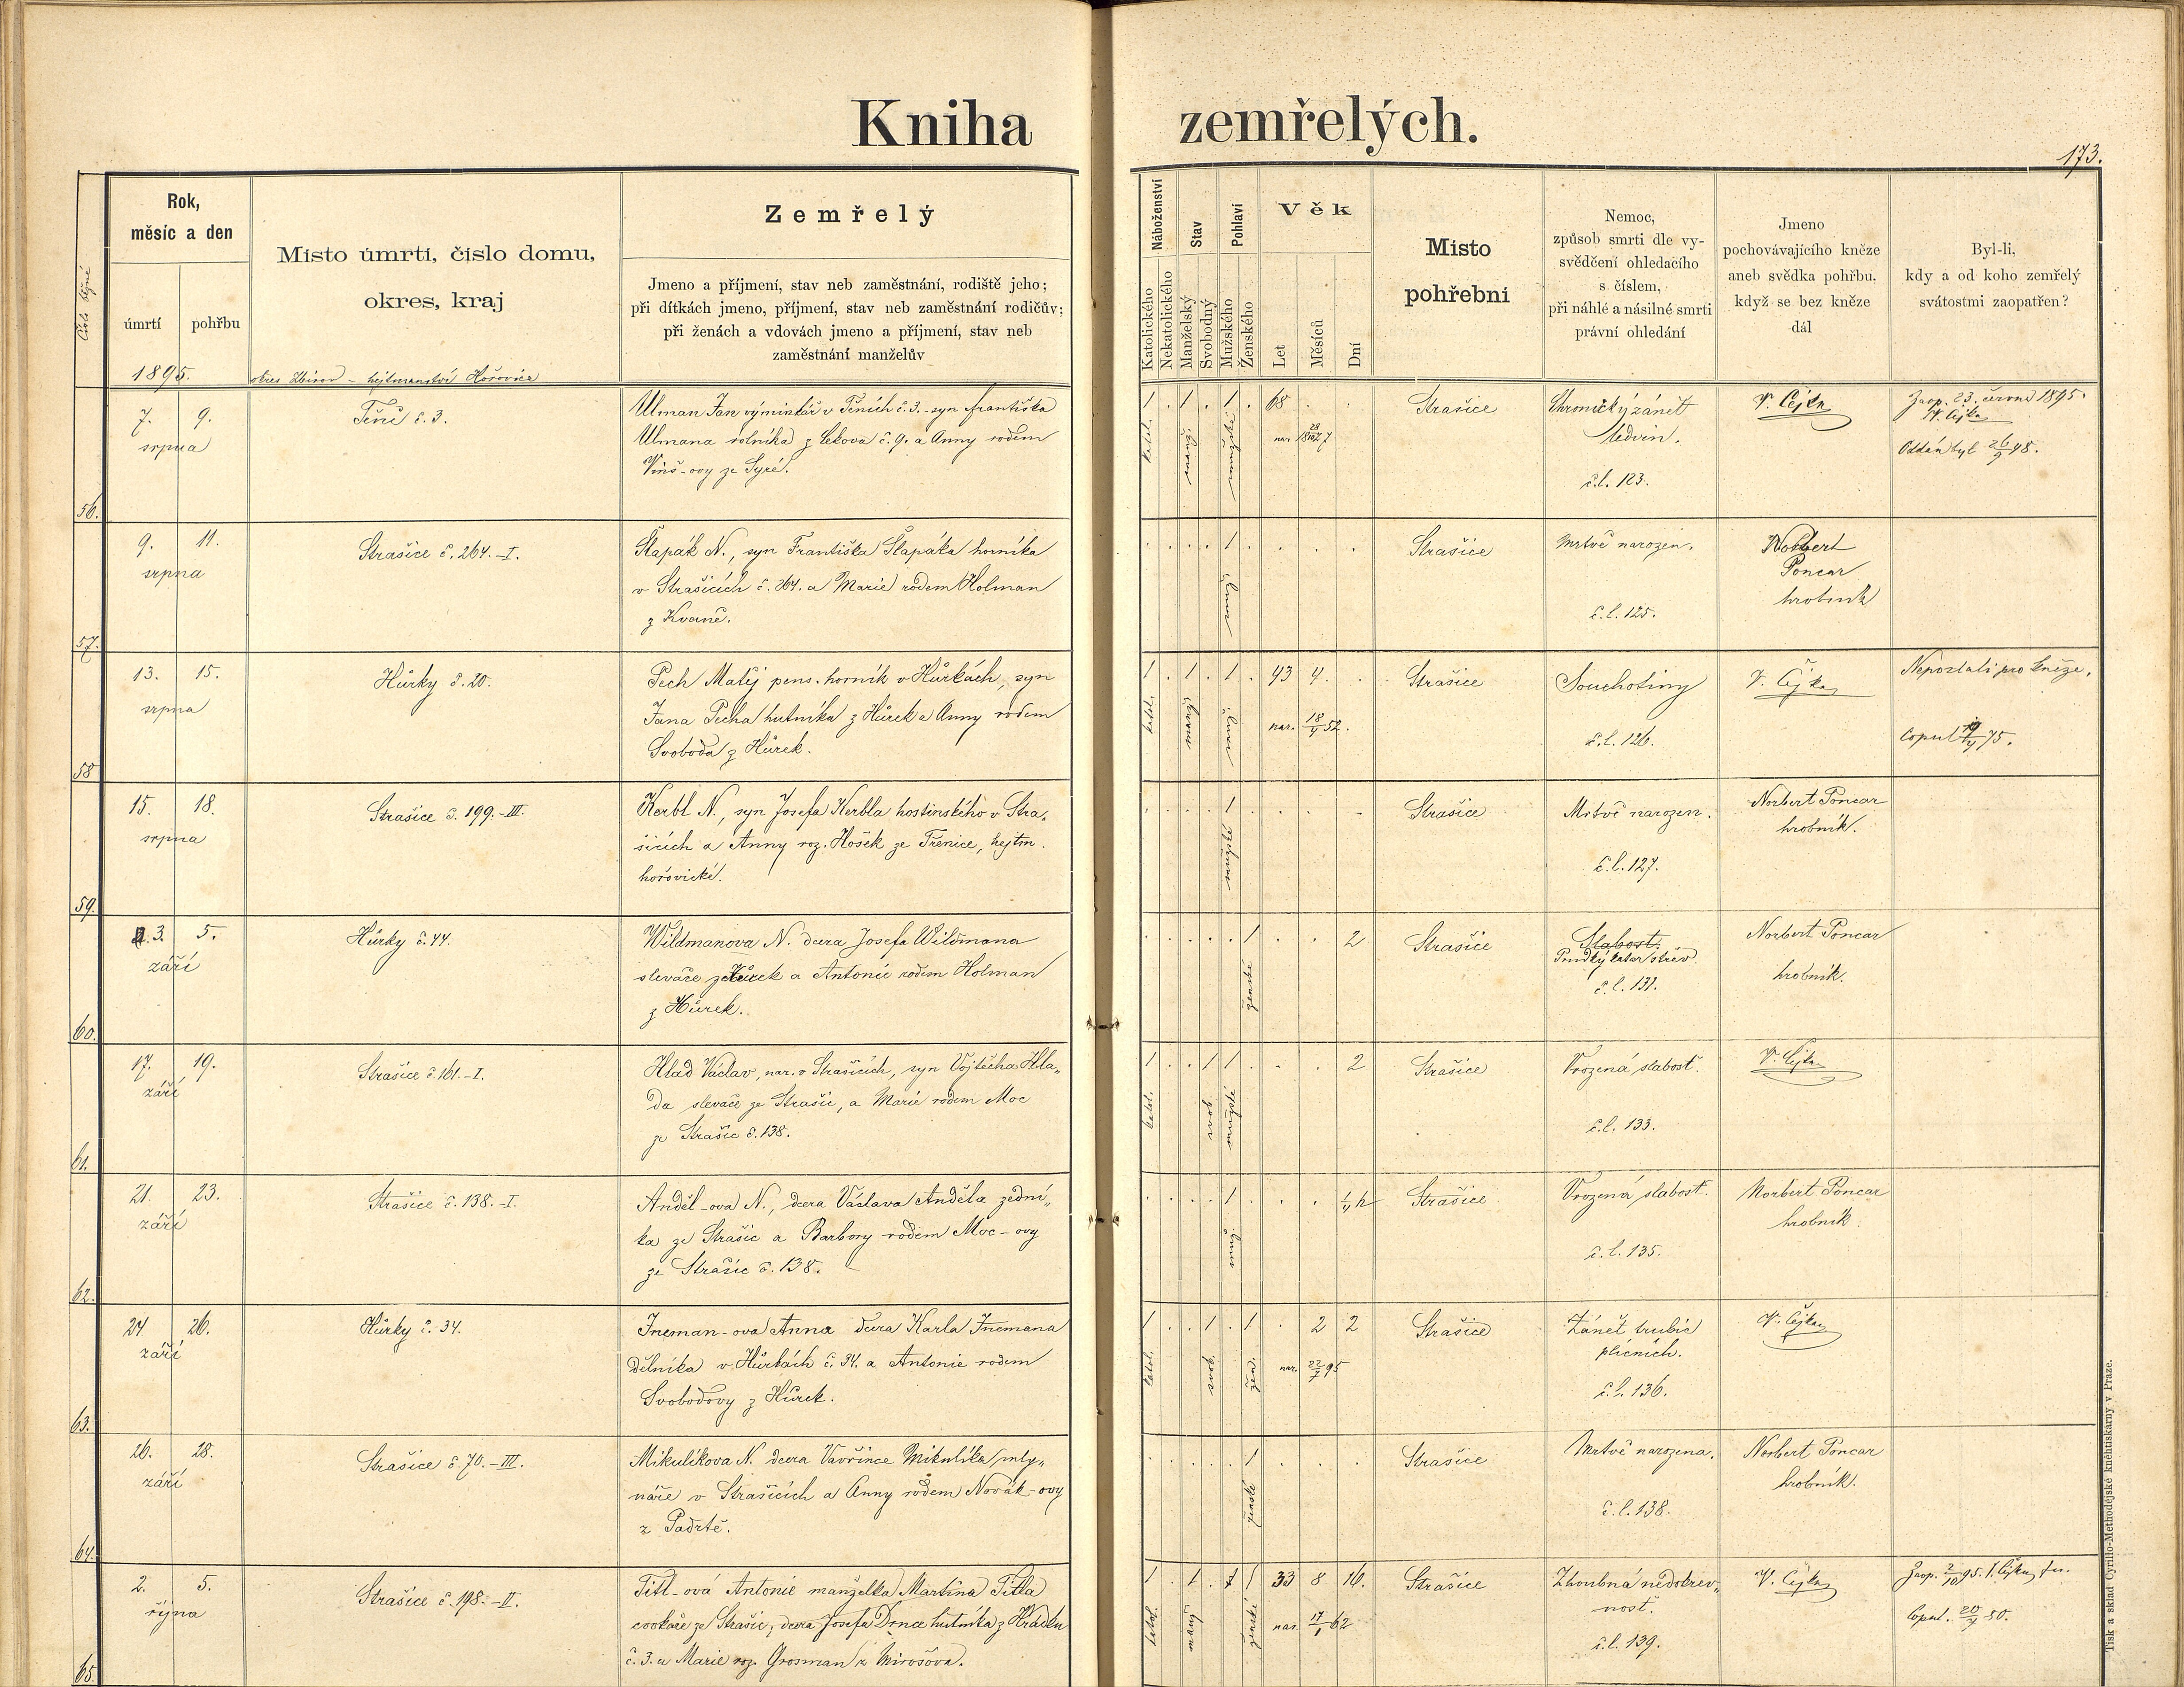 Kniha zemřelých.
173.
Číslo běžné
Rok,
měsíc a den
úmrtí
pohřbu
1895.
Místo úmrtí, číslo domu,
okres, kraj
okres Zbirov - hejtmanství Hořovice
Zemřelý
Jmeno a příjmení, stav neb zaměstnání, rodiště jeho;
při dítkách jmeno, příjmení, stav neb zaměstnání rodičův;
při ženách a vdovách jmeno a příjmení, stav neb
zaměstnání manželův
Náboženství
Katolického
Nekatolického
Stav
Manželský
Svobodný
Pohlaví
Mužského
Ženského
Věk
Let
Měsíců
Dní
Místo
pohřební
Nemoc,
způsob smrti dle vy-
svědčení ohledacího
s číslem,
při náhlé a násilné smrti
právní ohledání
Jmeno
pochovávajícího kněze
aneb svědka pohřbu,
když se bez kněze
dál
Byl-li,
kdy a od koho zemřelý
svátostmi zaopatřen?
56.
7. 9.
srpna
Těně č. 3.
Ulman Jan výminkář v Těních č. 3. - syn Františka
Ulmana rolníka z Lekova č. 9. a Anny rodem
Vinš-ovy ze Syré.
1 . 1 . 1 . 68 . .
katol. manž. mužské nar.
Strašice
Chronický zánět
ledvin.
č.l. 123.
V. Čejka
Zaop. 23. června 1895.
V. Čejka
Oddán byl 26/9 48.
57.
9. 11.
srpna
Strašice č. 264.-I.
Šlapák N., syn Františka Šlapáka horníka
v Strašicích č. 264. a Marie rodem Holman
z Kvaně.
. . . . 1 . . . .
muž.
Strašice
Mrtvě narozen.
č.l. 125.
Norbert
Poncar
hrobník
58
13. 15.
srpna
Hůrky č. 20.
Pech Matěj pens. horník v Hůrkách, syn
Jana Pecha hutníka z Hůrek a Anny rodem
Svoboda z Hůrek.
1 . 1 . 1 . 43 4. .
katol. manž. muž. nar. 18/4 52.
Strašice
Souchotiny
č.l. 126.
V. Čejka
Neposlali pro kněze.
Copul 75.
59.
15. 18.
srpna
Strašice č. 199.-III.
Kerbl N., syn Josefa Kerbla hostinského v Stra-
šicích a Anny roz. Hošek ze Třenice, hejtm.
hořovické.
. . . . 1 . . . .
mužské
Strašice
Mrtvě narozen.
č.l. 127.
Norbert Poncar
hrobník.
60.
3. 5.
září
Hůrky č. 44.
Wildmanova N. dcera Josefa Wildmana
slevače z Hůrek a Antonie rodem Holman
z Hůrek.
. . . . . 1 . . 2
ženské
Strašice
Slabost.
Prudký katar střev.
č.l. 131.
Norbert Poncar
hrobník.
61.
17. 19.
září
Strašice č. 161.-I.
Hlad Václav, nar. v Strašicích, syn Vojtěcha Hla-
da slevače ze Strašic, a Marie rodem Moc
ze Strašic č. 138.
1 . . 1 1 . . . 2
katol. svob. mužské
Strašice
Vrozená slabost.
č.l. 133.
V. Čejka
62.
21. 23.
září
Strašice č. 138.-I.
Anděl-ova N., dcera Václava Anděla zední-
ka ze Strašic a Barbory rodem Moc-ovy
ze Strašic č. 138.
. . . . 1 . . . 1/4 h
muž.
Strašice
Vrozená slabost.
č.l. 135.
Norbert Poncar
hrobník.
63.
24 26.
září
Hůrky č. 34.
Ineman-ova Anna dcera Karla Inemana
dělníka v Hůrkách č. 34. a Antonie rodem
Svobodovy z Hůrek.
1 . . 1 . 1 . 2 2
katol. svob. žen. nar. 22/7 95
Strašice
Zánět trubic
plicních.
č.l. 136.
V. Čejka
64.
26. 28.
září
Strašice č. 70.-III.
Mikulíkova N. dcera Vavřince Mikulíka mly-
náře v Strašicích a Anny rodem Novák-ovy
z Padrtě.
. . . . . 1 . . .
ženské
Strašice
Mrtvě narozena.
č.l. 138.
Norbert Poncar
hrobník.
65.
2. 5.
října
Strašice č. 198.-II.
Titl-ová Antonie manželka Martina Titla
cvokaře ze Strašic, dcera Josefa Drnce hutníka z Hrádku
č. 3. a Marie roz. Grosman z Mirošova.
1 . 1 . 1 33 8 16.
katol. manž. ženské nar. 17/1 62
Strašice
Zhoubná nedokrev-
nost.
č.l. 139.
V. Čejka
Zaop. 2/10 95. V. Čejka
Copul. 20/4 80.
Tisk a sklad Cyrillo-Methodějské kněhtiskárny v Praze.